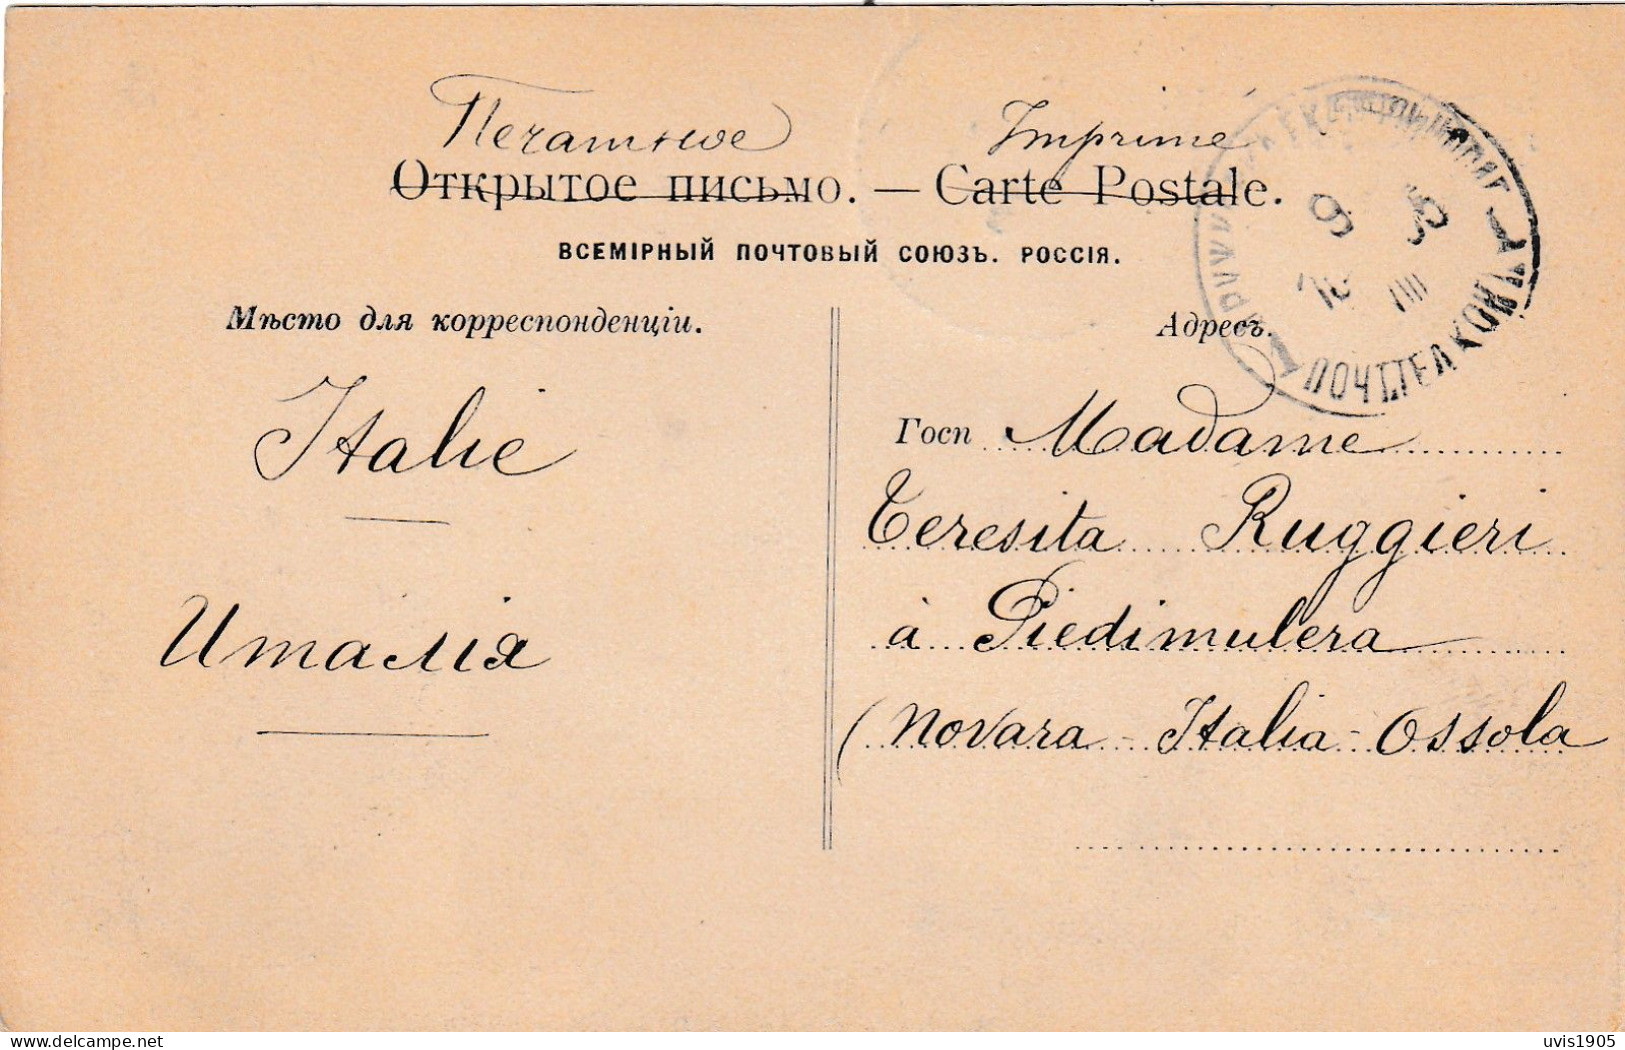 Печатное Imprimé
Открытое письмо. — Carte Postale.
ВСЕМІРНЫЙ ПОЧТОВЫЙ СОЮЗЪ. РОССІЯ.
Мѣсто для корреспонденціи.
Italie
Италія
Адресъ.
Госп Madame
Teresita Ruggieri
à Piedimulera
(Novara - Italia - Ossola
ПОЧ.ТЕЛ.КОН
delcampe.net
uvis1905